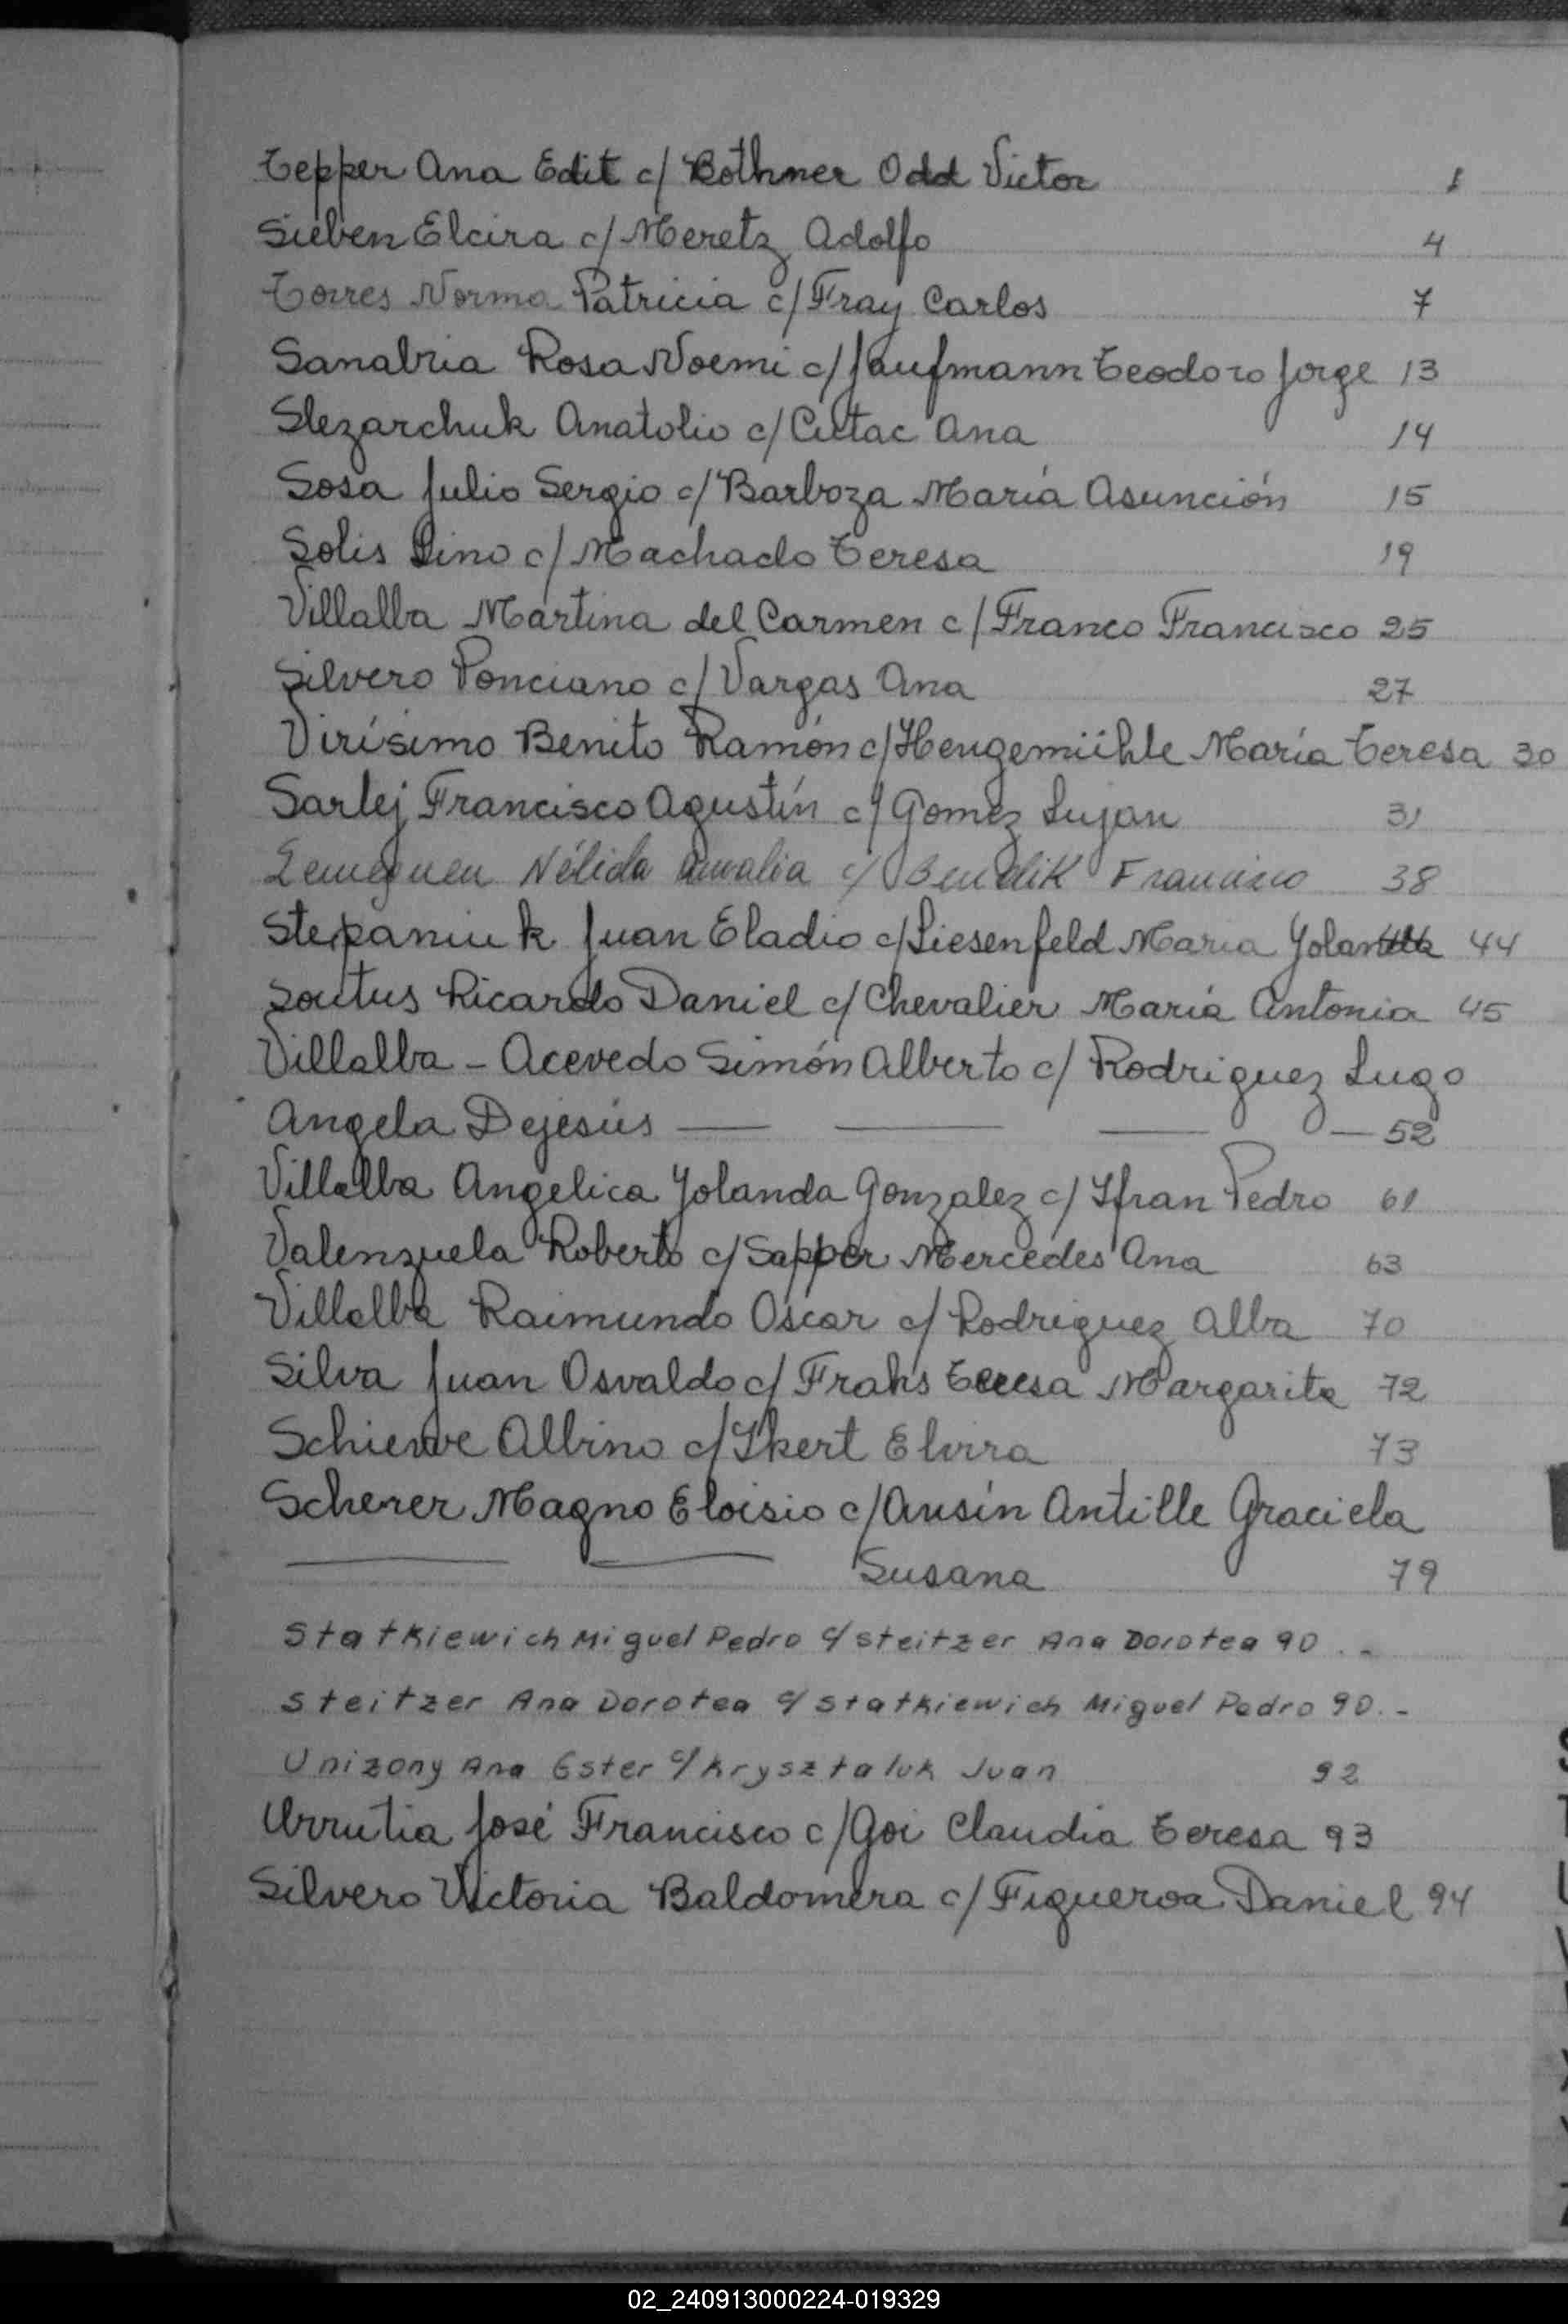 Tepper Ana Edit c/ Rothner Odd Victor 1
Sieben Elcira c/ Meretz Adolfo 4
Torres Norma Patricia c/ Fray Carlos 7
Sanabria Rosa Noemi c/ Jaufmann Teodoro Jorge 13
Slezarchuk Anatolio c/ Cutac Ana 14
Sosa Julio Sergio c/ Barboza María Asunción 15
Solis Lino c/ Machado Teresa 19
Villalba Martina del Carmen c/ Franco Francisco 25
Silvero Ponciano c/ Vargas Ana 27
Virísimo Benito Ramón c/ Hengemühle María Teresa 30
Sarlej Francisco Agustín c/ Gomez Lujan 31
Nélida Amalia c/ Bendik Francisco 38
Stepaniuk Juan Eladio c/ Liesenfeld Maria Yolanda 44
Soutus Ricardo Daniel c/ Chevalier María Antonia 45
Villalba - Acevedo Simón Alberto c/ Rodriguez Lugo
Angela Dejesús — — — — 52
Villalba Angelica Yolanda Gonzalez c/ Ifran Pedro 61
Valenzuela Roberto c/ Sapper Mercedes Ana 63
Villalba Raimundo Oscar c/ Rodriguez Alba 70
Silva Juan Osvaldo c/ Frahs Teresa Margarita 72
Schiewe Albino c/ Ikert Elvira 73
Scherer Magno Eloisio c/ Ausín Antille Graciela
— — Susana 79
Statkiewich Miguel Pedro c/ Steitzer Ana Dorotea 90.-
Steitzer Ana Dorotea c/ Statkiewich Miguel Pedro 90.-
Unizony Ana Ester c/ Krysztaluk Juan 92
Urrutia José Francisco c/ Goi Claudia Teresa 93
Silvero Victoria Baldomera c/ Figueroa Daniel 94
02_240913000224-019329